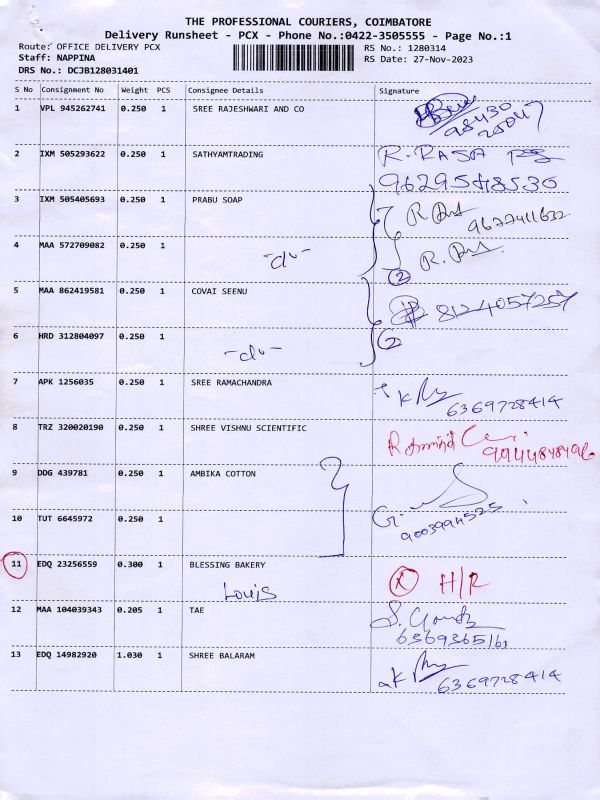 THE PROFESSIONAL COURIERS, COIMBATORE
Delivery Runsheet - PCX - Phone No.:0422-3505555 - Page No.:1
Route: OFFICE DELIVERY PCX RS No.: 1280314
Staff: NAPPINA RS Date: 27-Nov-2023
DRS No.: DCJB128031401
S No Consignment No Weight PCS Consignee Details Signature
1 VPL 945262741 0.250 1 SREE RAJESHWARI AND CO
98430
20047
2 IXM 505293622 0.250 1 SATHYAMTRADING R. RASA
9629548530
3 IXM 505405693 0.250 1 PRABU SOAP
9677411632
4 MAA 572709082 0.250 1
-do- 2
5 MAA 862419581 0.250 1 COVAI SEENU 8124057257
6 HRD 312804097 0.250 1 2
-do-
7 APK 1256035 0.250 1 SREE RAMACHANDRA
6369728414
8 TRZ 320020190 0.250 1 SHREE VISHNU SCIENTIFIC
9 DDG 439781 0.250 1 AMBIKA COTTON
10 TUT 6645972 0.250 1
11 EDQ 23256559 0.300 1 BLESSING BAKERY X H/R
Louis
12 MAA 104039343 0.205 1 TAE
13 EDQ 14982920 1.030 1 SHREE BALARAM
6369728414